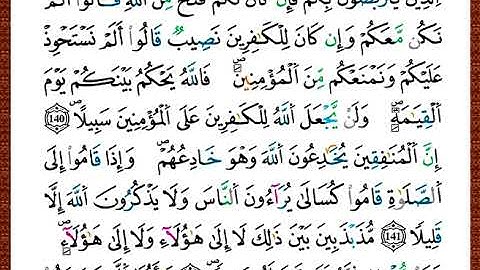 ٱلَّذِينَ يَتَرَبَّصُونَ بِكُمْ فَإِن كَانَ لَكُمْ فَتْحٌ مِّنَ ٱللَّهِ قَالُوٓا۟ أَلَمْ
نَكُن مَّعَكُمْ وَإِن كَانَ لِلْكَـٰفِرِينَ نَصِيبٌ قَالُوٓا۟ أَلَمْ نَسْتَحْوِذْ
عَلَيْكُمْ وَنَمْنَعْكُم مِّنَ ٱلْمُؤْمِنِينَ ۚ فَٱللَّهُ يَحْكُمُ بَيْنَكُمْ يَوْمَ
ٱلْقِيَـٰمَةِ ۗ وَلَن يَجْعَلَ ٱللَّهُ لِلْكَـٰفِرِينَ عَلَى ٱلْمُؤْمِنِينَ سَبِيلًا ﴿140﴾
إِنَّ ٱلْمُنَـٰفِقِينَ يُخَـٰدِعُونَ ٱللَّهَ وَهُوَ خَـٰدِعُهُمْ ۖ وَإِذَا قَامُوٓا۟ إِلَى
ٱلصَّلَوٰةِ قَامُوا۟ كُسَالَىٰ يُرَآءُونَ ٱلنَّاسَ وَلَا يَذْكُرُونَ ٱللَّهَ إِلَّا
قَلِيلًا ﴿141﴾ مُّذَبْذَبِينَ بَيْنَ ذَٰلِكَ لَآ إِلَىٰ هَـٰٓؤُلَآءِ وَلَآ إِلَىٰ هَـٰٓؤُلَآءِ ۚ